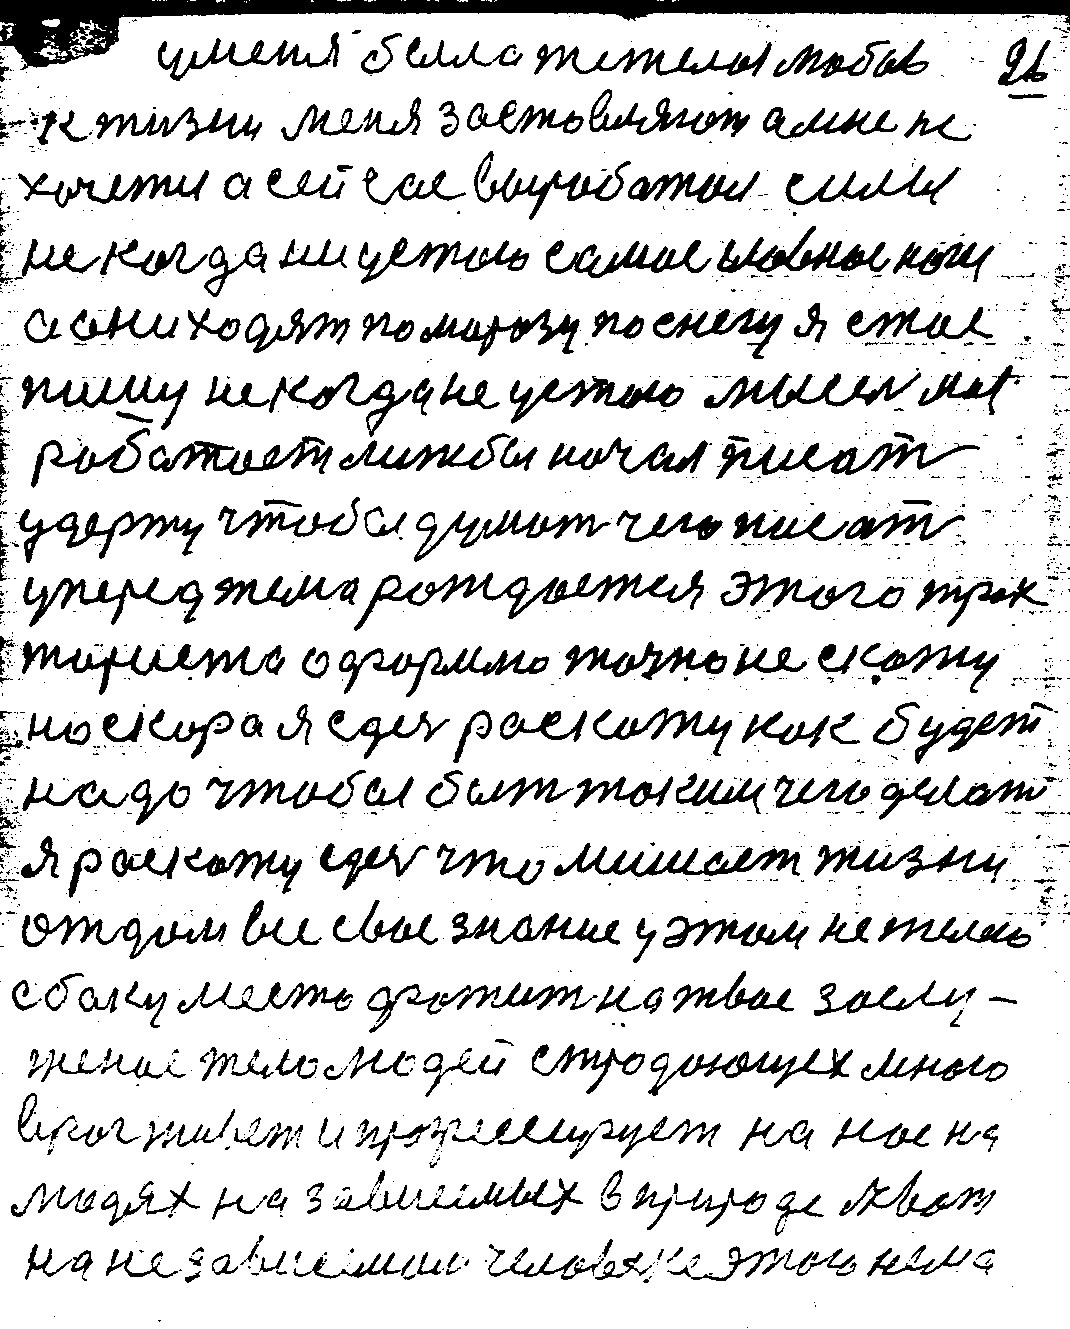 уменя была тежелая любов 26
к жизни меня заставляют а мне не
хочетя а сейчас выработал силы
не когда ни устаю самое главное ноги
а они ходят по морозу по снегу я стое
пишу не когда не устаю мысел моя
работает лижбы начал писат
удержу чтобы думат чего писат
уперед тема рождается этого трак
ториста оформлю точно не скажу
но скора я сдес раскажу как будет
надо чтобы быт таким чего делат
я раскажу сдес что мишает жизни
отдам все свое знание у этом не жилею
с боку место дрожит на твое заслу-
женое тело людей стродающех много
враг живет и прогрессирует на нас на
людях на зависимых в природе хват
на не зависимом человеке этого нема